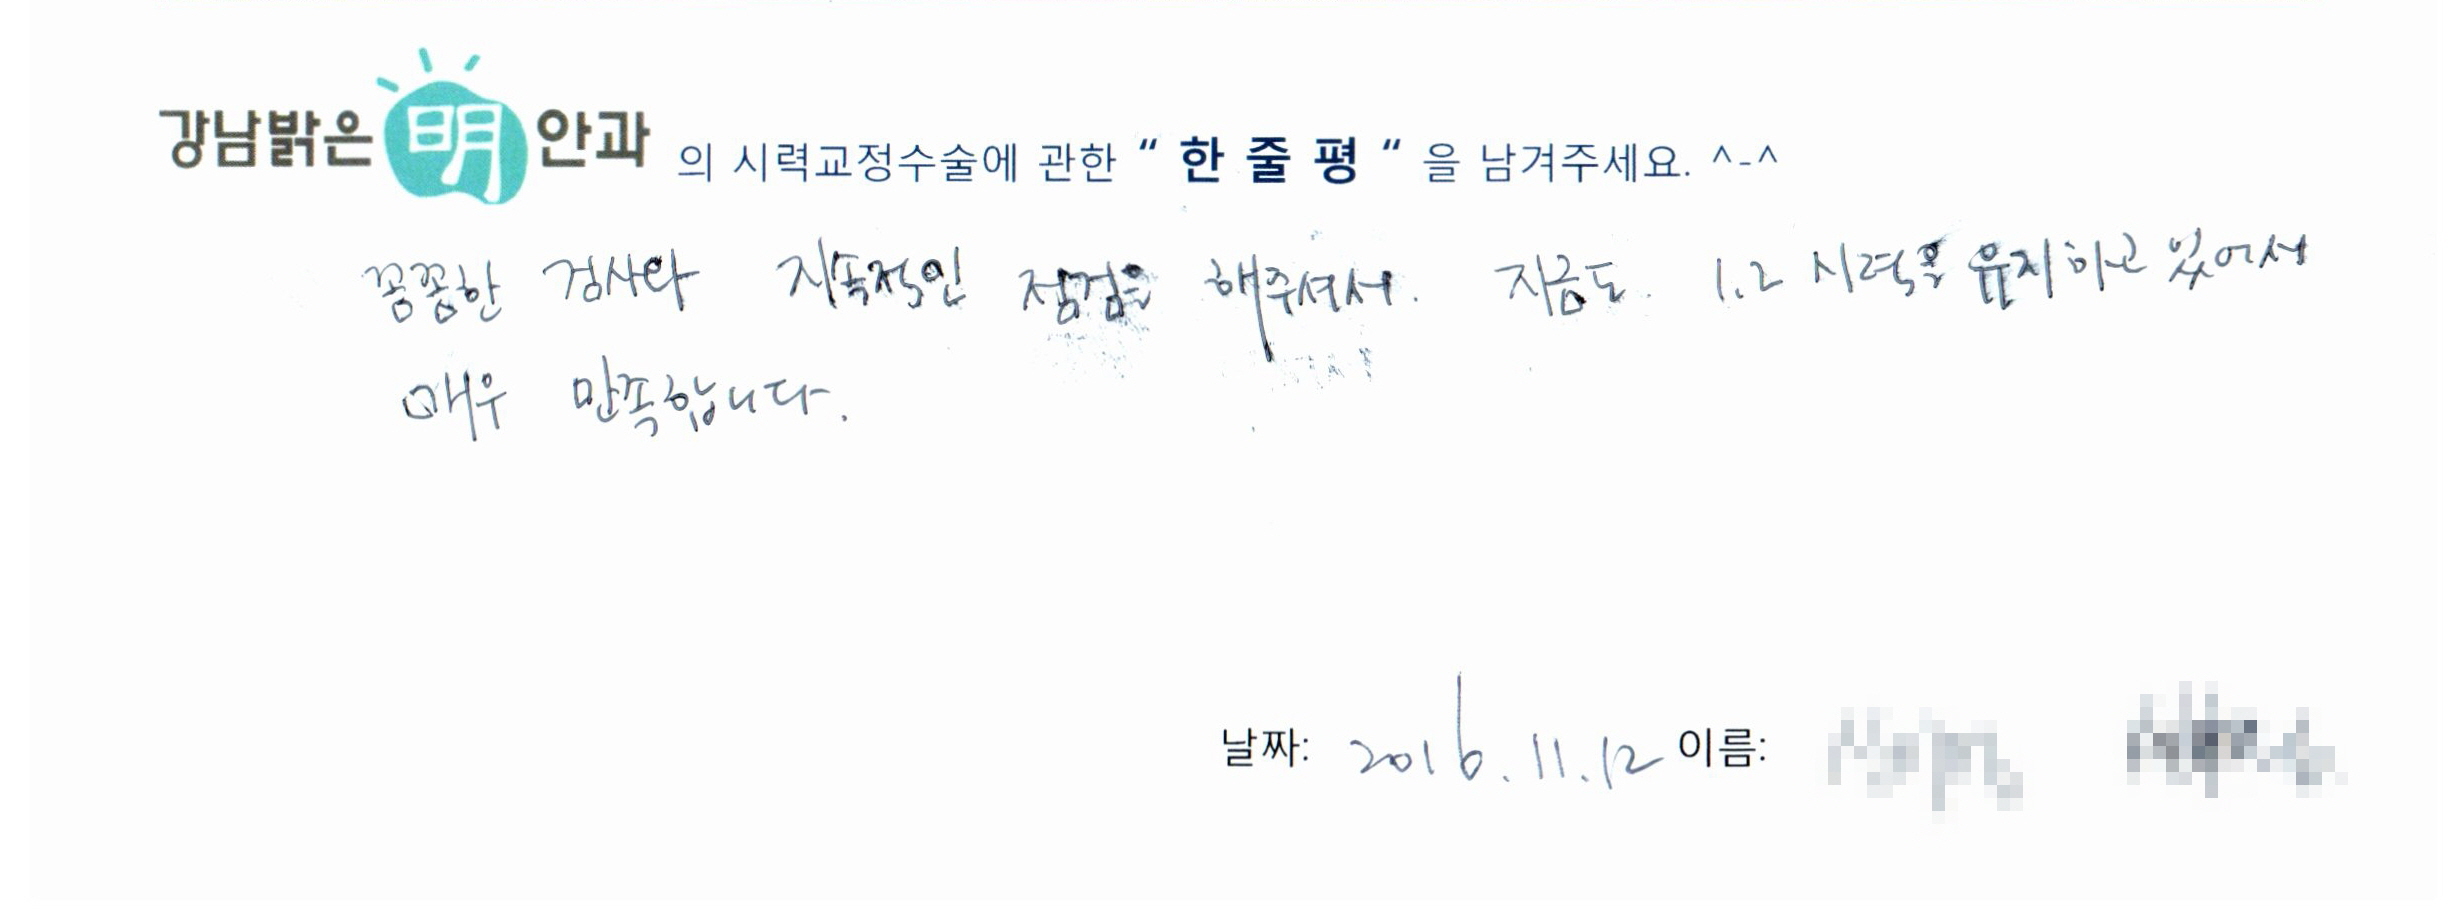 강남밝은明안과 의 시력교정수술에 관한 “ 한 줄 평 “ 을 남겨주세요. ^-^
꼼꼼한 검사와 지속적인 점검을 해주셔서. 지금도. 1.2 시력을 유지하고 있어서
매우 만족합니다.
날짜: 2016.11.12 이름: